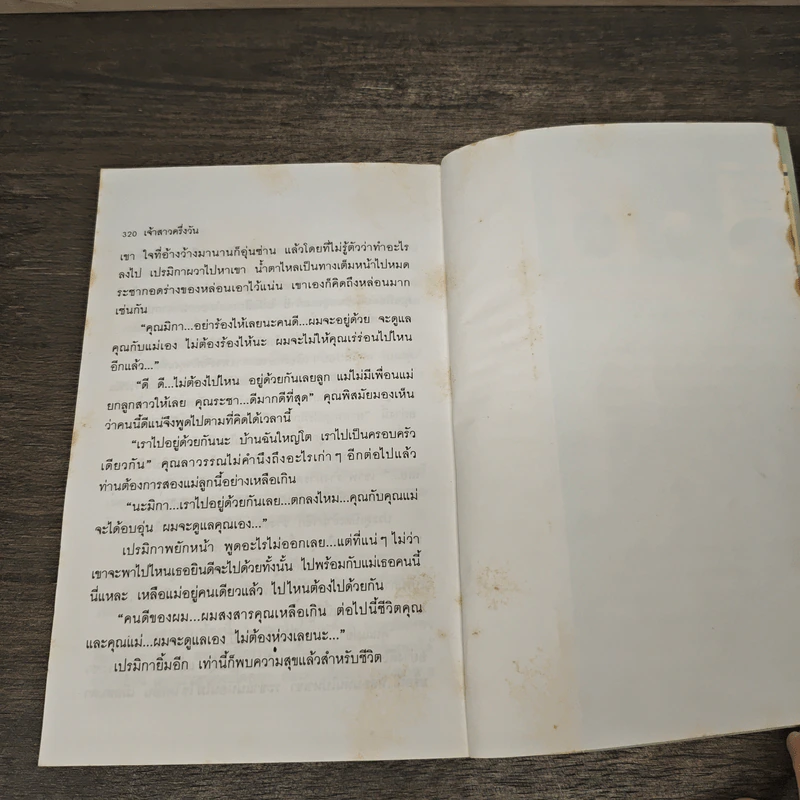 320 เจ้าสาวครึ่งวัน
เขา ใจที่อ้างว้างมานานก็อุ่นซ่าน แล้วโดยที่ไม่รู้ตัวว่าทำอะไร
ลงไป เปรมิกาผวาไปหาเขา น้ำตาไหลเป็นทางเต็มหน้าไปหมด
ระชากอดร่างของหล่อนเอาไว้แน่น เขาเองก็คิดถึงหล่อนมาก
เช่นกัน
“คุณมิกา...อย่าร้องไห้เลยนะคนดี...ผมจะอยู่ด้วย จะดูแล
คุณกับแม่เอง ไม่ต้องร้องไห้นะ ผมจะไม่ให้คุณเร่ร่อนไปไหน
อีกแล้ว...”
“ดี ดี...ไม่ต้องไปไหน อยู่ด้วยกันเลยลูก แม่ไม่มีเพื่อนแม่
ยกลูกสาวให้เลย คุณระชา...ดีมากดีที่สุด” คุณพิสมัยมองเห็น
ว่าคนนี้ดีแน่จึงพูดไปตามที่คิดได้เวลานี้
“เราไปอยู่ด้วยกันนะ บ้านฉันใหญ่โต เราไปเป็นครอบครัว
เดียวกัน” คุณลาวรรณไม่คำนึงถึงอะไรเก่าๆ อีกต่อไปแล้ว
ท่านต้องการสองแม่ลูกนี้อย่างเหลือเกิน
“นะมิกา...เราไปอยู่ด้วยกันเลย...ตกลงไหม...คุณกับคุณแม่
จะได้อบอุ่น ผมจะดูแลคุณเอง...”
เปรมิกาพยักหน้า พูดอะไรไม่ออกเลย...แต่ที่แน่ๆ ไม่ว่า
เขาจะพาไปไหนเธอยินดีจะไปด้วยทั้งนั้น ไปพร้อมกับแม่เธอคนนี้
นี่แหละ เหลือแม่อยู่คนเดียวแล้ว ไปไหนต้องไปด้วยกัน
“คนดีของผม...ผมสงสารคุณเหลือเกิน ต่อไปนี้ชีวิตคุณ
และคุณแม่...ผมจะดูแลเอง ไม่ต้องห่วงเลยนะ...”
เปรมิกายิ้มอีก เท่านี้ก็พบความสุขแล้วสำหรับชีวิต